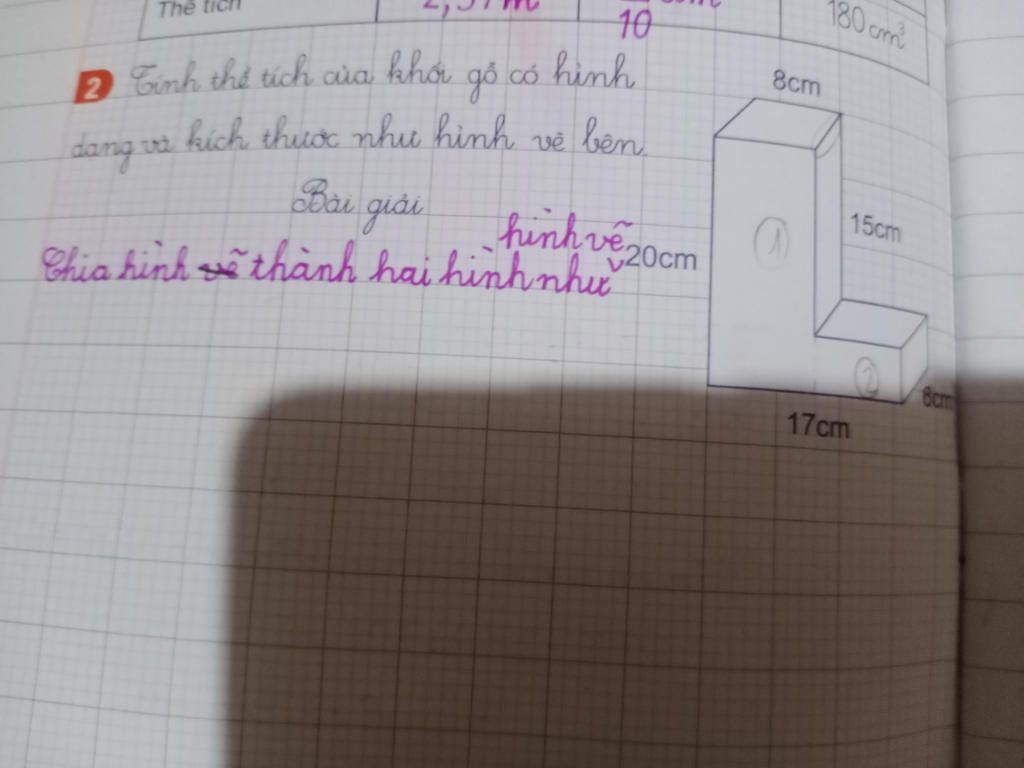 Thể tích 2,57m 10 180 cm³
2 Tính thể tích của khối gỗ có hình
dạng và kích thước như hình vẽ bên.
Bài giải
hình vẽ
Chia hình vẽ thành hai hình như
8cm
15cm
20cm
1
2
6cm
17cm